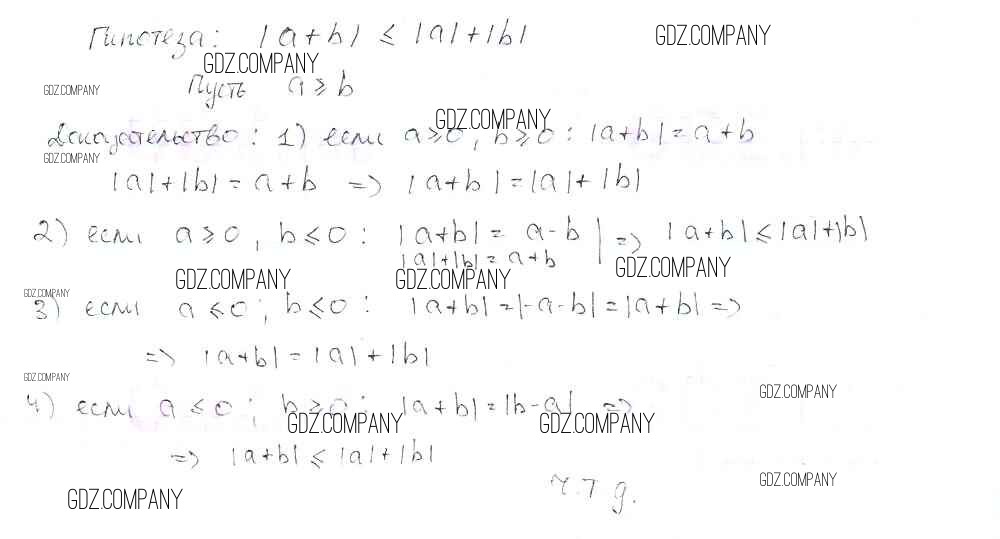 Гипотеза: |a+b| ≤ |a|+|b|
GDZ.COMPANY
GDZ.COMPANY
GDZ.COMPANY
Пусть a ≥ b
GDZ.COMPANY
Доказательство: 1) если a ≥ 0, b ≥ 0: |a+b| = a+b
GDZ.COMPANY
|a|+|b| = a+b => |a+b| = |a|+|b|
2) если a ≥ 0, b ≤ 0: |a+b| = a-b | => |a+b| ≤ |a|+|b|
|a|+|b| = a+b
GDZ.COMPANY
GDZ.COMPANY
GDZ.COMPANY
GDZ.COMPANY
3) если a ≤ 0; b ≤ 0: |a+b| = |-a-b| = |a+b| =>
=> |a+b| = |a|+|b|
GDZ.COMPANY
GDZ.COMPANY
4) если a ≤ 0; b ≥ 0: |a+b| = |b-a| =>
GDZ.COMPANY
GDZ.COMPANY
=> |a+b| ≤ |a|+|b|
GDZ.COMPANY
ч.т.д.
GDZ.COMPANY